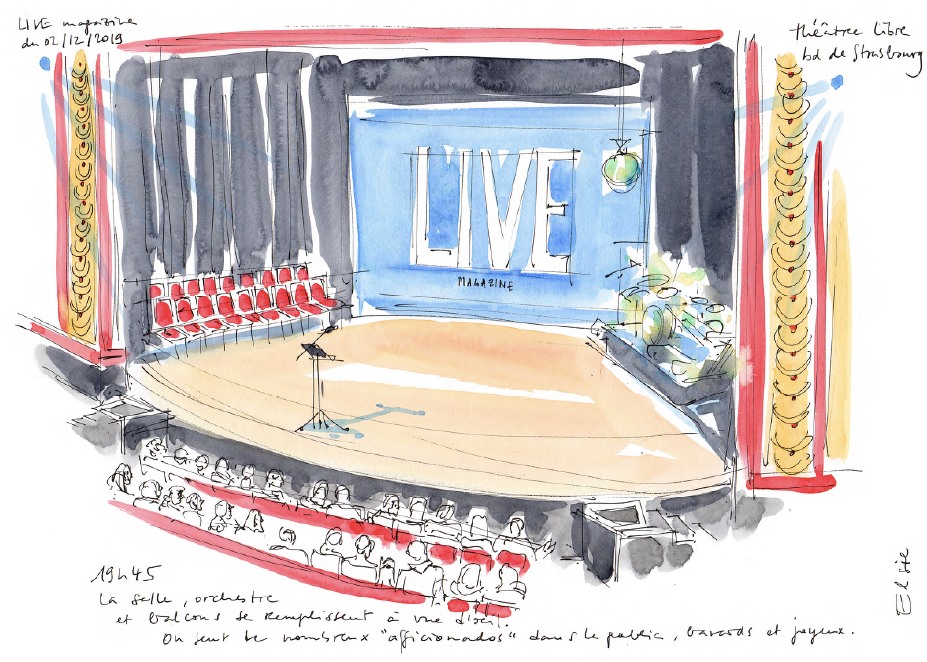 LIVE magazine
du 02/12/2019
théâtre libre
bd de Strasbourg
LIVE
MAGAZINE
19h45
La salle, orchestre
et balcons se remplissent à vue d'œil.
On sent de nombreux "afficionados" dans le public, bavards et joyeux.